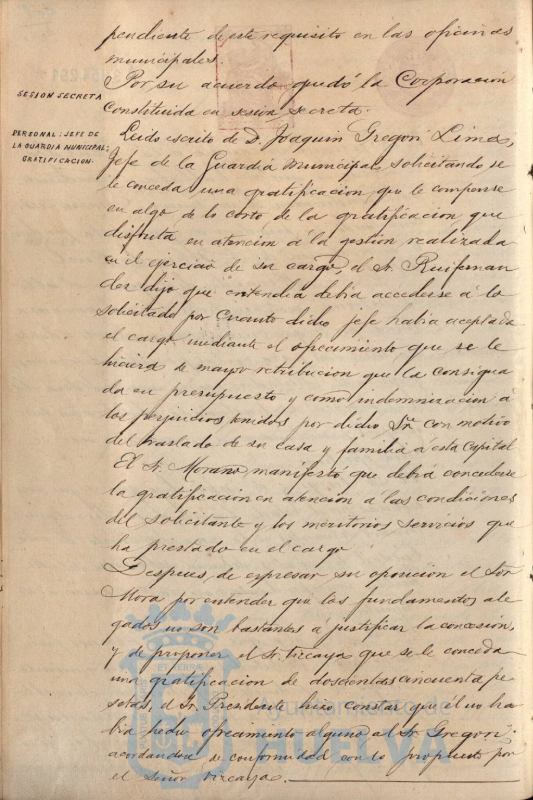 pendiente de este requisito en las oficinas
municipales.
SESION SECRETA
Por su acuerdo quedó la Corporacion
Constituida en sesión secreta.
PERSONAL: JEFE DE
LA GUARDIA MUNICIPAL;
GRATIFICACION.
Leido escrito de D. Joaquin Gregori Limas,
Jefe de la Guardia Municipal, solicitando se
le conceda una gratificacion que le compense
en algo de lo corto de la gratificacion que
disfruta en atencion á la gestion realizada
en el ejercicio de su cargo, el Sr. Ruifernan
dez dijo que entendia debia accederse á lo
solicitado por cuanto dicho jefe habia aceptado
el cargo mediante el ofrecimiento que se le
hiciera de mayor retribucion que la consigna
da en presupuesto y como indemnizacion á
los perjuicios tenidos por dicho Sr. con motivo
del traslado de su casa y familia á esta Capital
El Sr. Morano manifestó que debia concederse
la gratificacion en atencion á las condiciones
del solicitante y los meritorios servicios que
ha prestado en el cargo
Despues de expresar su oposicion el Sor
Mora por entender que los fundamentos ale
gados no son bastantes á justificar la concesion,
y de proponer el Sr. Vizcaya que se le conceda
una gratificacion de doscientas cincuenta pe
setas, el Sr. Presidente hizo constar que él no ha
bia hecho ofrecimiento alguno al Sr. Gregori.
acordandose de conformidad con lo propuesto por
el Señor Vizcaya.
Ayuntamiento de
HUELVA